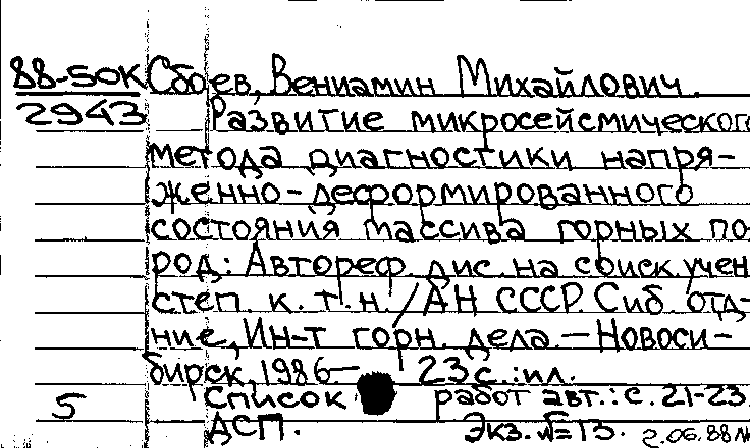 88-50К Сбоев, Вениамин Михайлович.
2943 Развитие микросейсмического
метода диагностики напря-
женно-деформированного
состояния массива горных по
род: Автореф. дис. на соиск. учен
степ. к. т. н. / АН СССР. Сиб. отд-
ние, Ин-т горн. дела. — Новоси-
бирск, 1986— 23 с.: ил.
Список работ авт.: с. 21-23
5 ДСП. Экз. №=13. 2.06.88